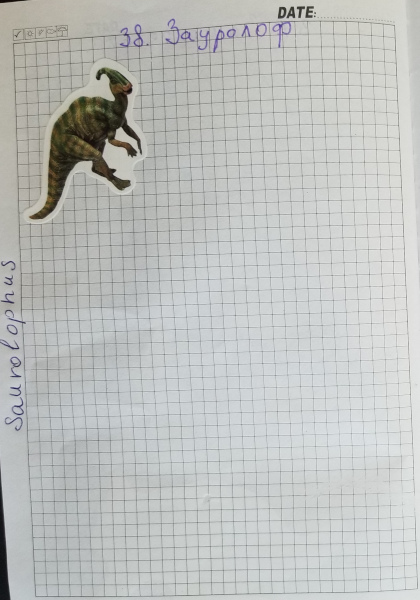 DATE:
38. Зауролоф
Saurolophus